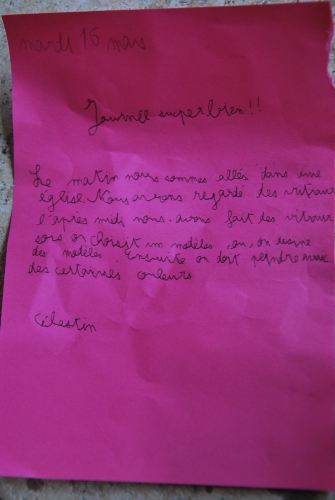 mardi 16 mars
Journée super bien !!
Le matin nous sommes allés dans une
église. Nous avons regardé des vitraux
l'après midi nous avons fait des vitraux
on choisit un modèles ou on
des modèles. Ensuite on doit peindre avec
des certaines couleurs
Célestin